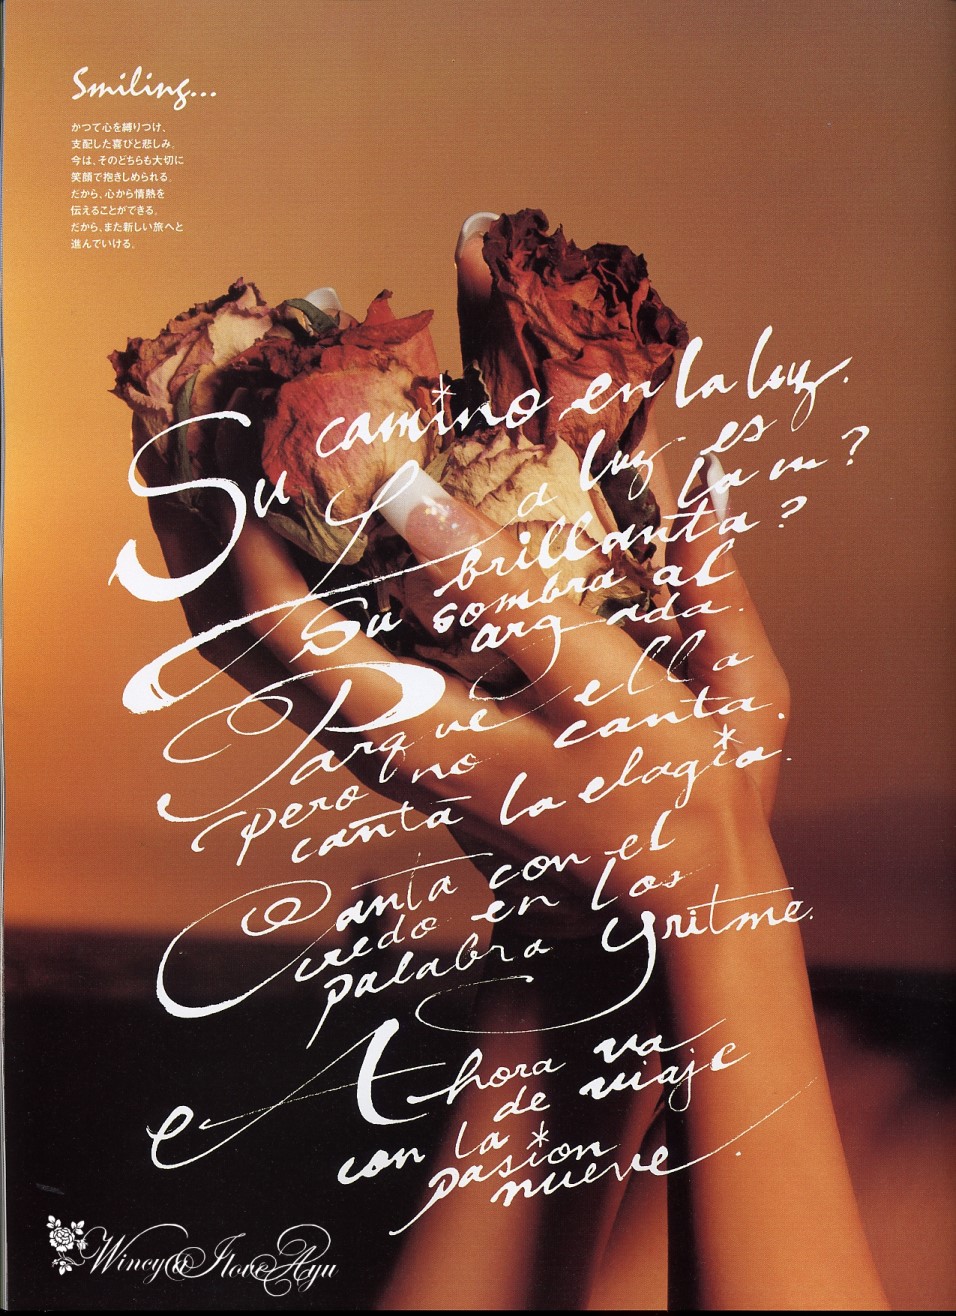 Smiling...
かつて心を縛りつけ、
支配した喜びと悲しみ。
今は、そのどちらも大切に
笑顔で抱きしめられる。
だから、心から情熱を
伝えることができる。
だから、また新しい旅へと
進んでいける。
Su camino en la luz.
La luz es
brillanta? tam?
Su sombra al
argada.
Parque ella
pero no canta.
canta la elagia.
Canta con el
credo en los
palabra y ritme.
e Ahora va
de viaje
con la
pasion
nueve.
Wincy@IloveAyu